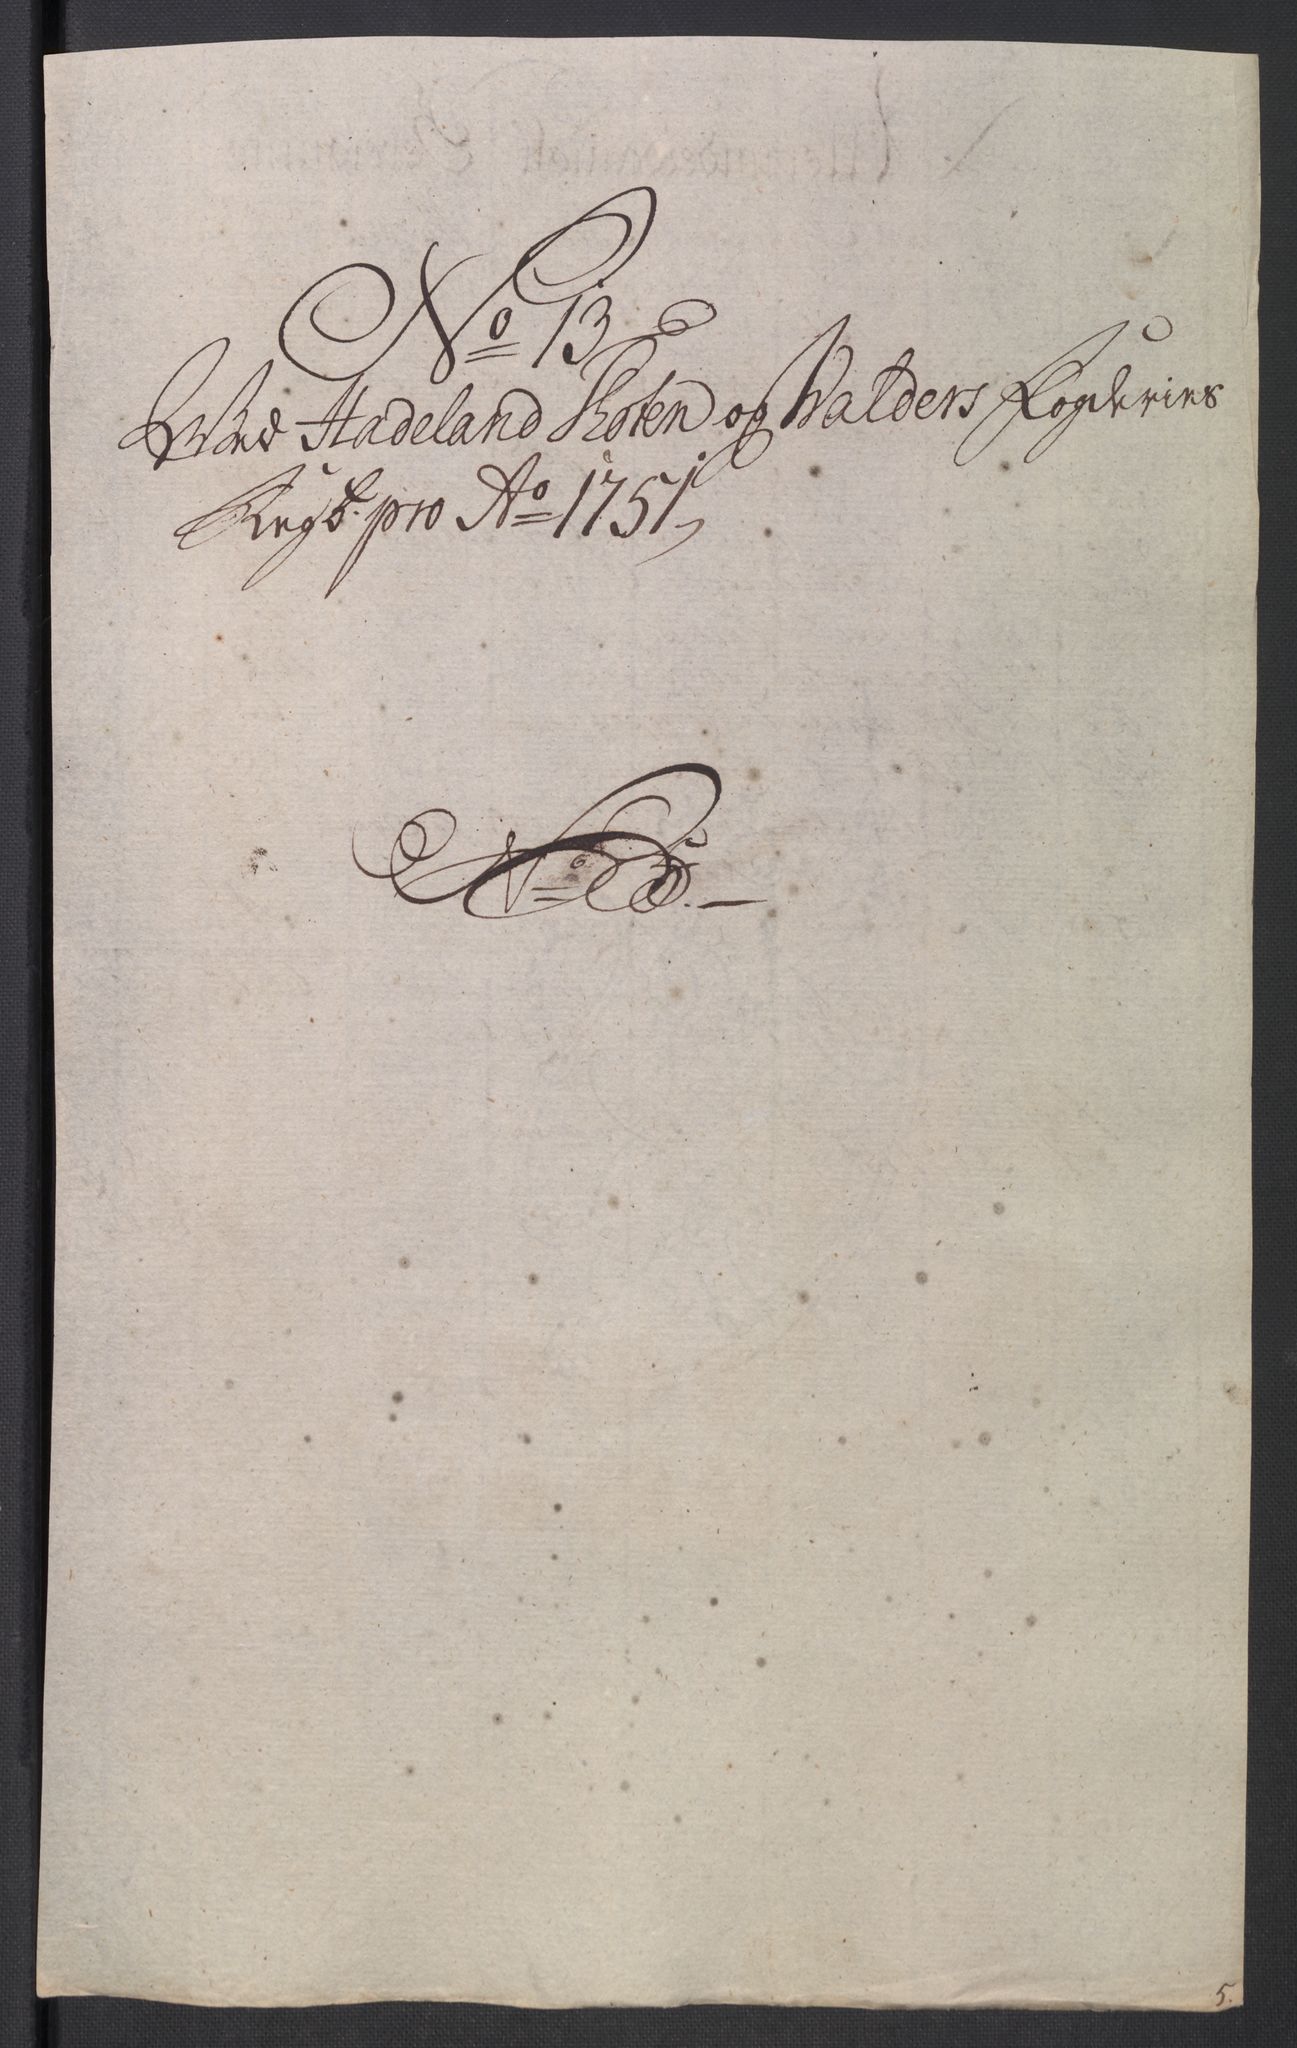 No 13
Ved Hadeland Toten og Walders Fogderies
Regsk. pro Ao 1751
No
5.